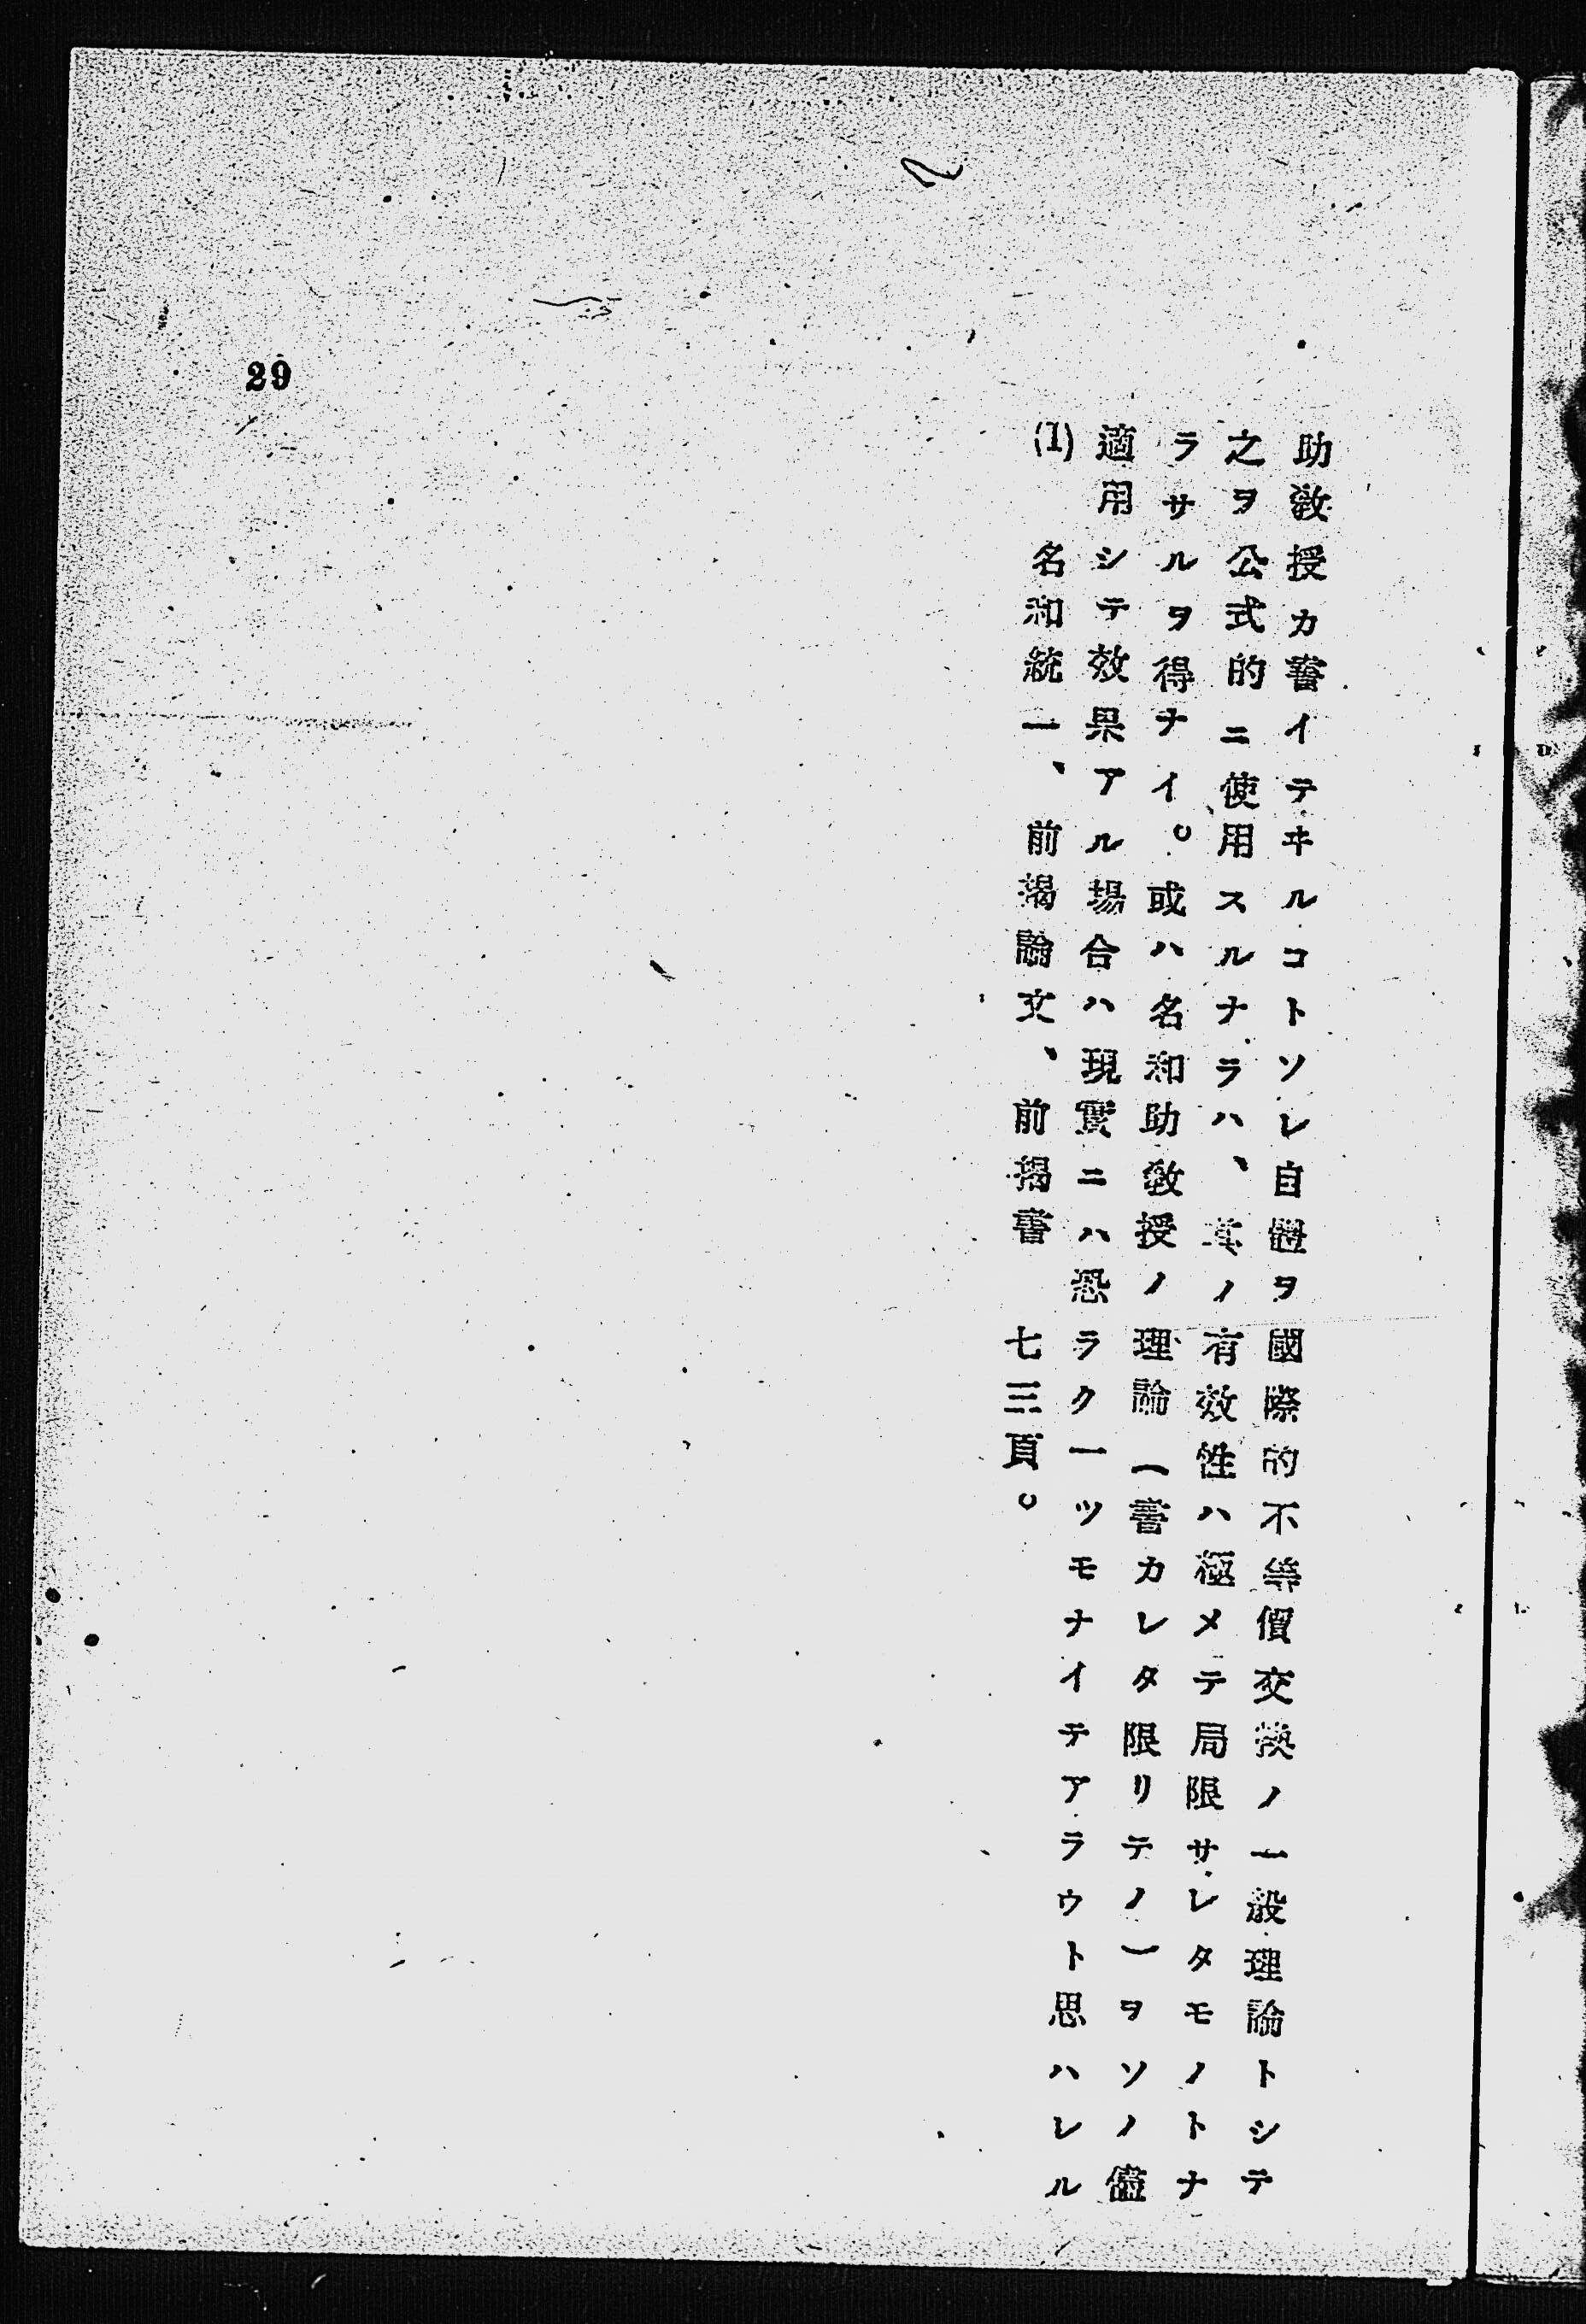 助敎授カ書イテヰルコトソレ自體ヲ國際的不等價交換ノ一般理論トシテ
之ヲ公式的ニ使用スルナラハ、其ノ有效性ハ極メテ局限サレタモノトナ
ラサルヲ得ナイ。或ハ名和助敎授ノ理論(書カレタ限リテノ)ヲソノ儘
適用シテ效果アル場合ハ現實ニハ恐ラク一ツモナイテアラウト思ハレル
(1) 名和統一、前揭論文、前揭書 七三頁。
29